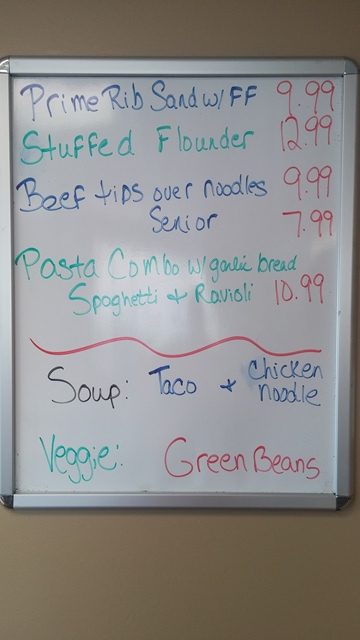 Prime Rib Sand w/ FF 9.99
Stuffed Flounder 12.99
Beef tips over noodles 9.99
Senior 7.99
Pasta Combo w/ garlic bread
Spaghetti + Ravioli 10.99
Soup: Taco + Chicken noodle
Veggie: Green Beans